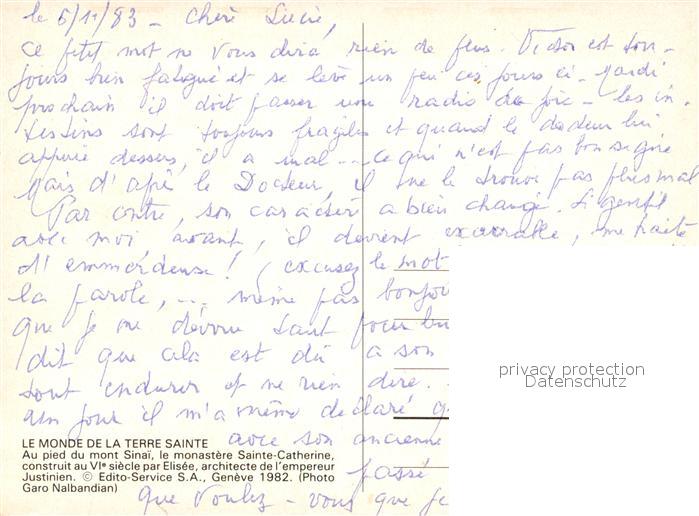 le 5/11/83 - Chère Lucie,
Ce petit mot ne vous dira rien de plus. Victor est tou-
jours bien fatigué et se lève un peu ces jours ci - Mardi
prochain il doit passer une radio du foie - les in.
testins sont toujours fragiles et quand le docteur lui
appuie dessus, il a mal... ce qui n'est pas bon signe
Mais d'après le Docteur, il ne le trouve pas plus mal
Par contre, son caractère a bien changé. Si gentil
avec moi avant, il devient exécrable, me traite
d'emmerdeuse! (excusez le mot
la parole, ... même pas bonjour
que je me dévoue tant pour lui
dit que cela est dû à son
tout endurer et ne rien dire.
un jour il m'a même déclaré q
avec son ancienne
LE MONDE DE LA TERRE SAINTE
Au pied du mont Sinaï, le monastère Sainte-Catherine,
construit au VIe siècle par Elisée, architecte de l'empereur
Justinien. © Edito-Service S.A., Genève 1982. (Photo
Garo Nalbandian)
passé
que voulez-vous que je
privacy protection
Datenschutz